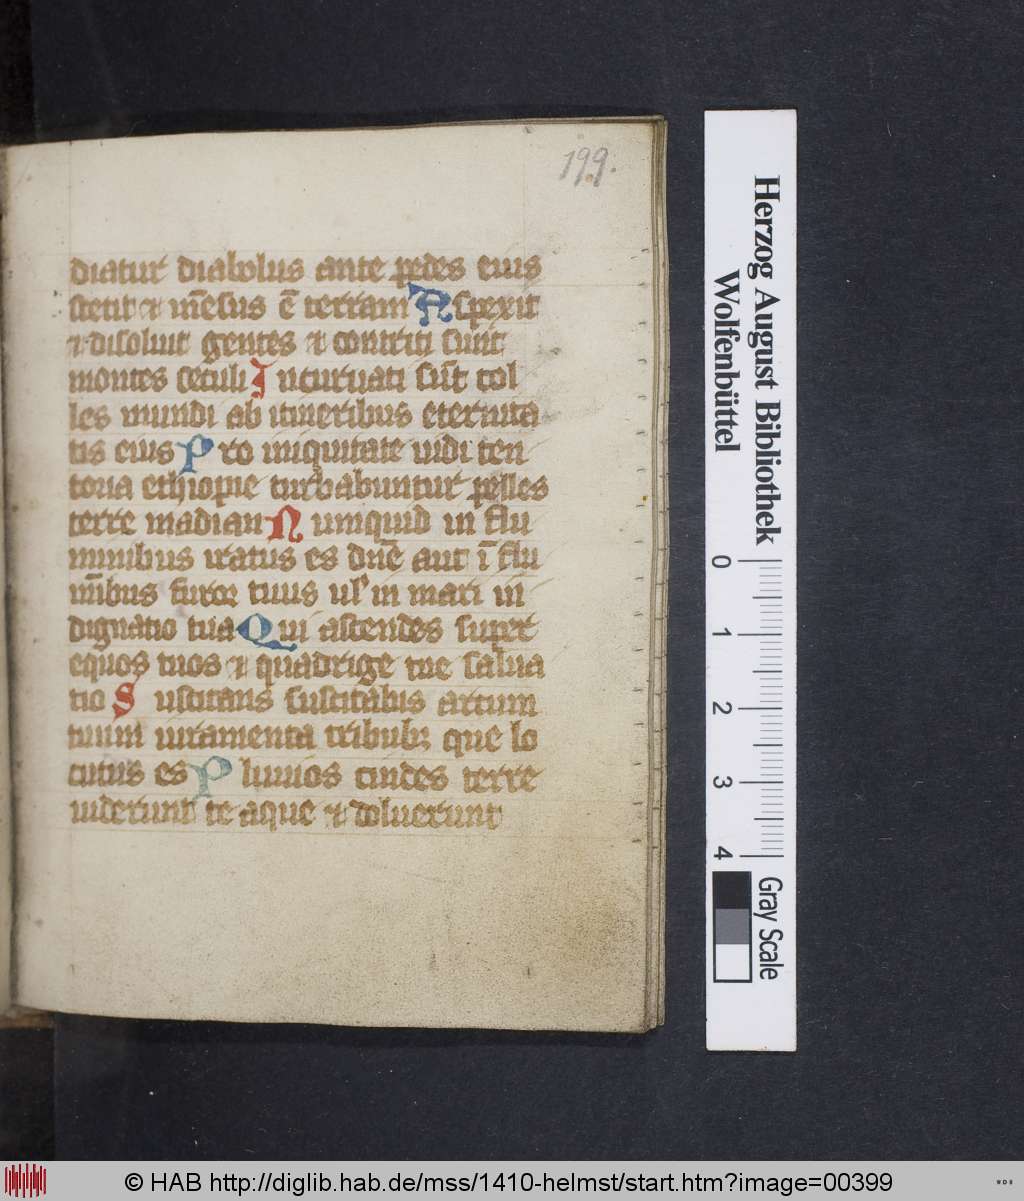 199.
diatur diabolus ante pedes eius
stetit ⁊ mẽsus ẽ terram Aspexit
⁊ disoluit gentes ⁊ contriti sunt
montes seculi Incuruati sũt col
les mundi ab itineribus eternita
tis eius Pro iniquitate uidi ten
toria ethiopie turbabuntur pelles
terre madian Numquid in flu
minibus iratus es dñe aut ĩ flu
mĩbus furor tuus ul' in mari in
dignatio tua Qui ascendes super
equos tuos ⁊ quadrige tue salua
tio Suscitans suscitabis arcum
tuum iuramenta tribubꝫ que lo
cutus es Fluuios cindes terre
uiderunt te aque ⁊ doluerunt
Herzog August Bibliothek
Wolfenbüttel
0 1 2 3 4
Gray Scale
© HAB http://diglib.hab.de/mss/1410-helmst/start.htm?image=00399